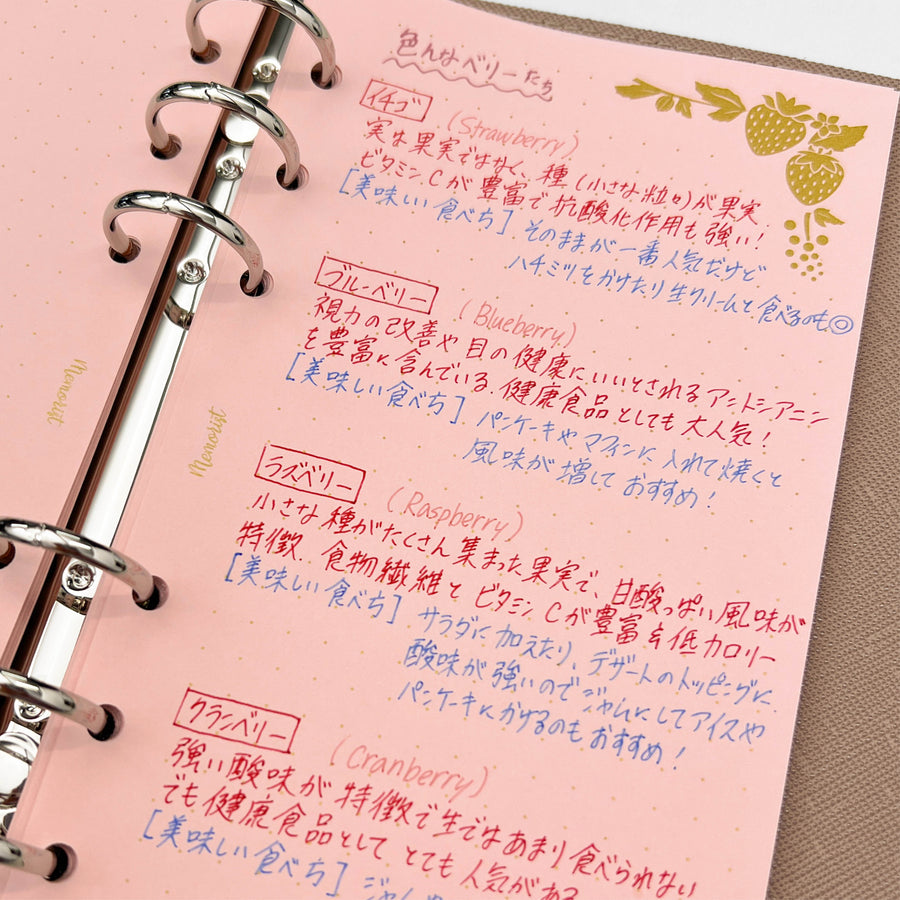 色んなベリーたち
イチゴ (Strawberry)
実は果実ではなく、種(小さな粒々)が果実
ビタミンCが豊富で抗酸化作用も強い!
[美味しい食べち] そのままが一番人気だけど
ハチミツをかけたり生クリームと食べるのも◎
ブルーベリー (Blueberry)
視力の改善や目の健康にいいとされるアントシアニン
を豊富に含んでいる健康食品としても大人気!
[美味しい食べち] パンケーキやマフィンに入れて焼くと
風味が増しておすすめ!
ラズベリー (Raspberry)
小さな種がたくさん集まった果実で、甘酸っぱい風味が
特徴. 食物繊維とビタミンCが豊富&低カロリー
[美味しい食べち] サラダに加えたり、デザートのトッピングに
酸味が強いのでジャムにしてアイスや
パンケーキにかけるのもおすすめ!
クランベリー (Cranberry)
強い酸味が特徴で生ではあまり食べられない
でも健康食品としてとても人気がある
[美味しい食べち]
Memorist
Memorist